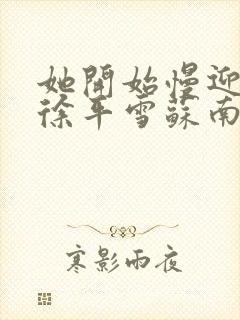 她開始慢迎
徐平雪蘇南
寒影雨夜